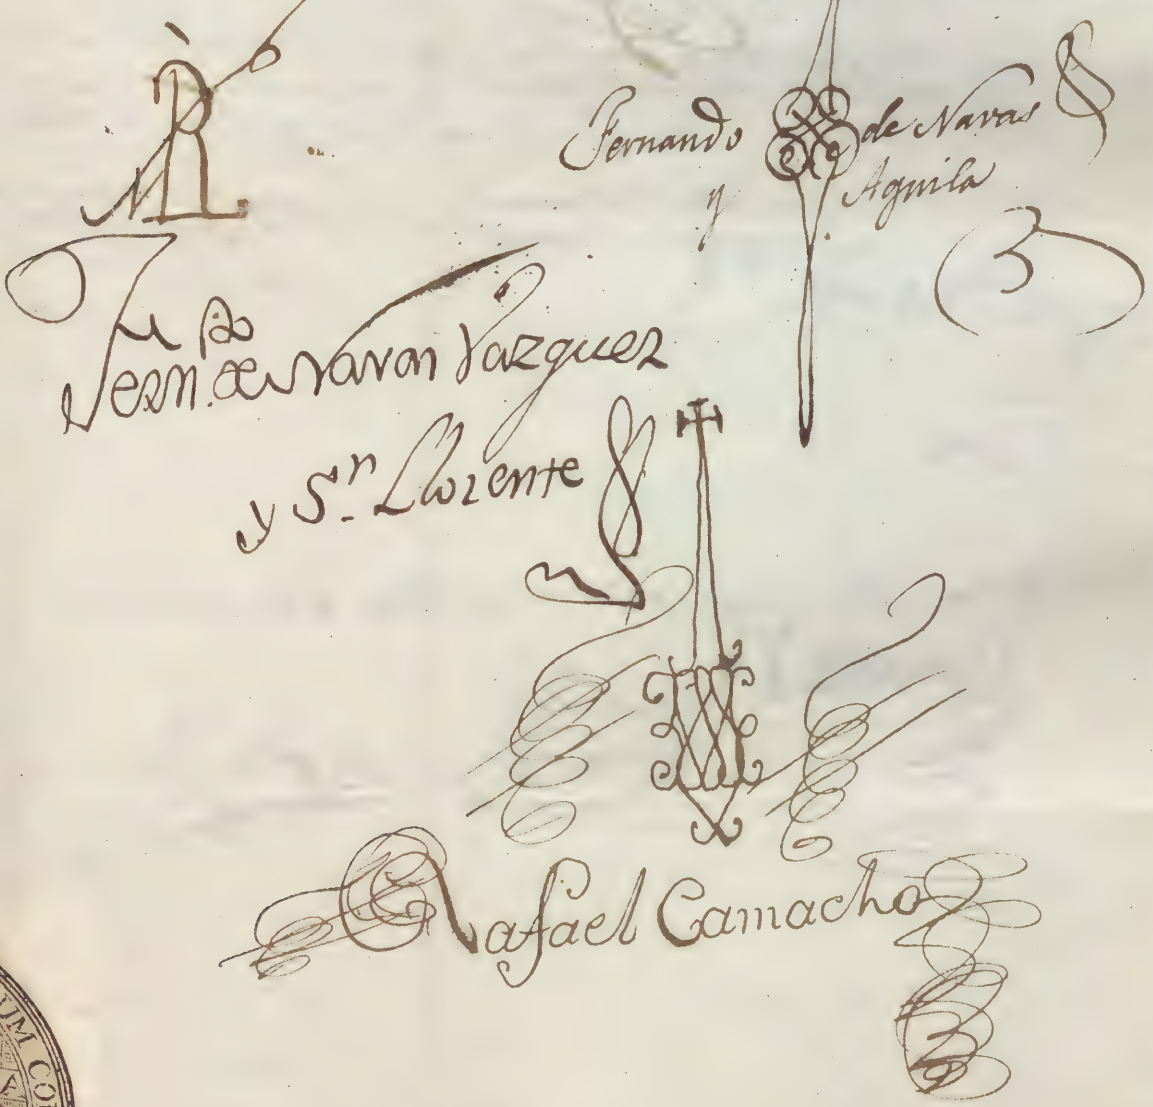 Fernando de Navas
y Aguila
Fern. de Navas Vazquez
y Sn. Llorente
Rafael Camacho
UM CO